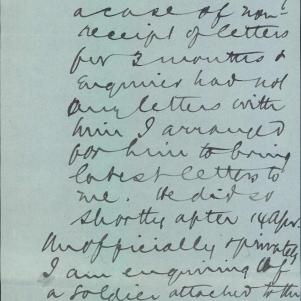 a case of non-
receipt of letters
for 2 months &
Enquirer had not
any letters with
him I arranged
for him to bring
latest letters to
me. He did so
shortly after 14 Apr.
Unofficially & privately
I am enquiring of
a soldier attached to the